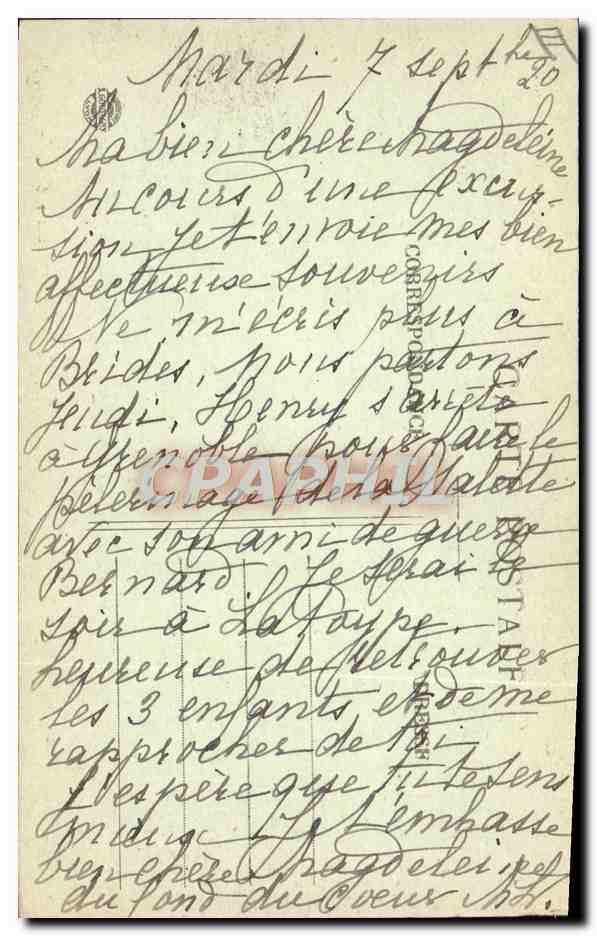 Mardi 7 septbre 20
Ma bien chère Magdeleine
Au cours d'une excur-
sion je t'envoie mes bien
affectueux souvenirs
Ne m'écris plus à
Brides, nous partons
jeudi, Henry s'arrête
à Grenoble pour faire le
pèlerinage de la Salette
avec son ami de guerre
Bernard Je serai le
soir à La Poype.
heureuse de retrouver
les 3 enfants et de me
rapprocher de toi
J'espère que tu te sens
mieux Je t'embrasse
bien chère Magdeleine
du fond du coeur
CARTE POSTALE
CORRESPONDANCE
ADRESSE
CPAPHIL